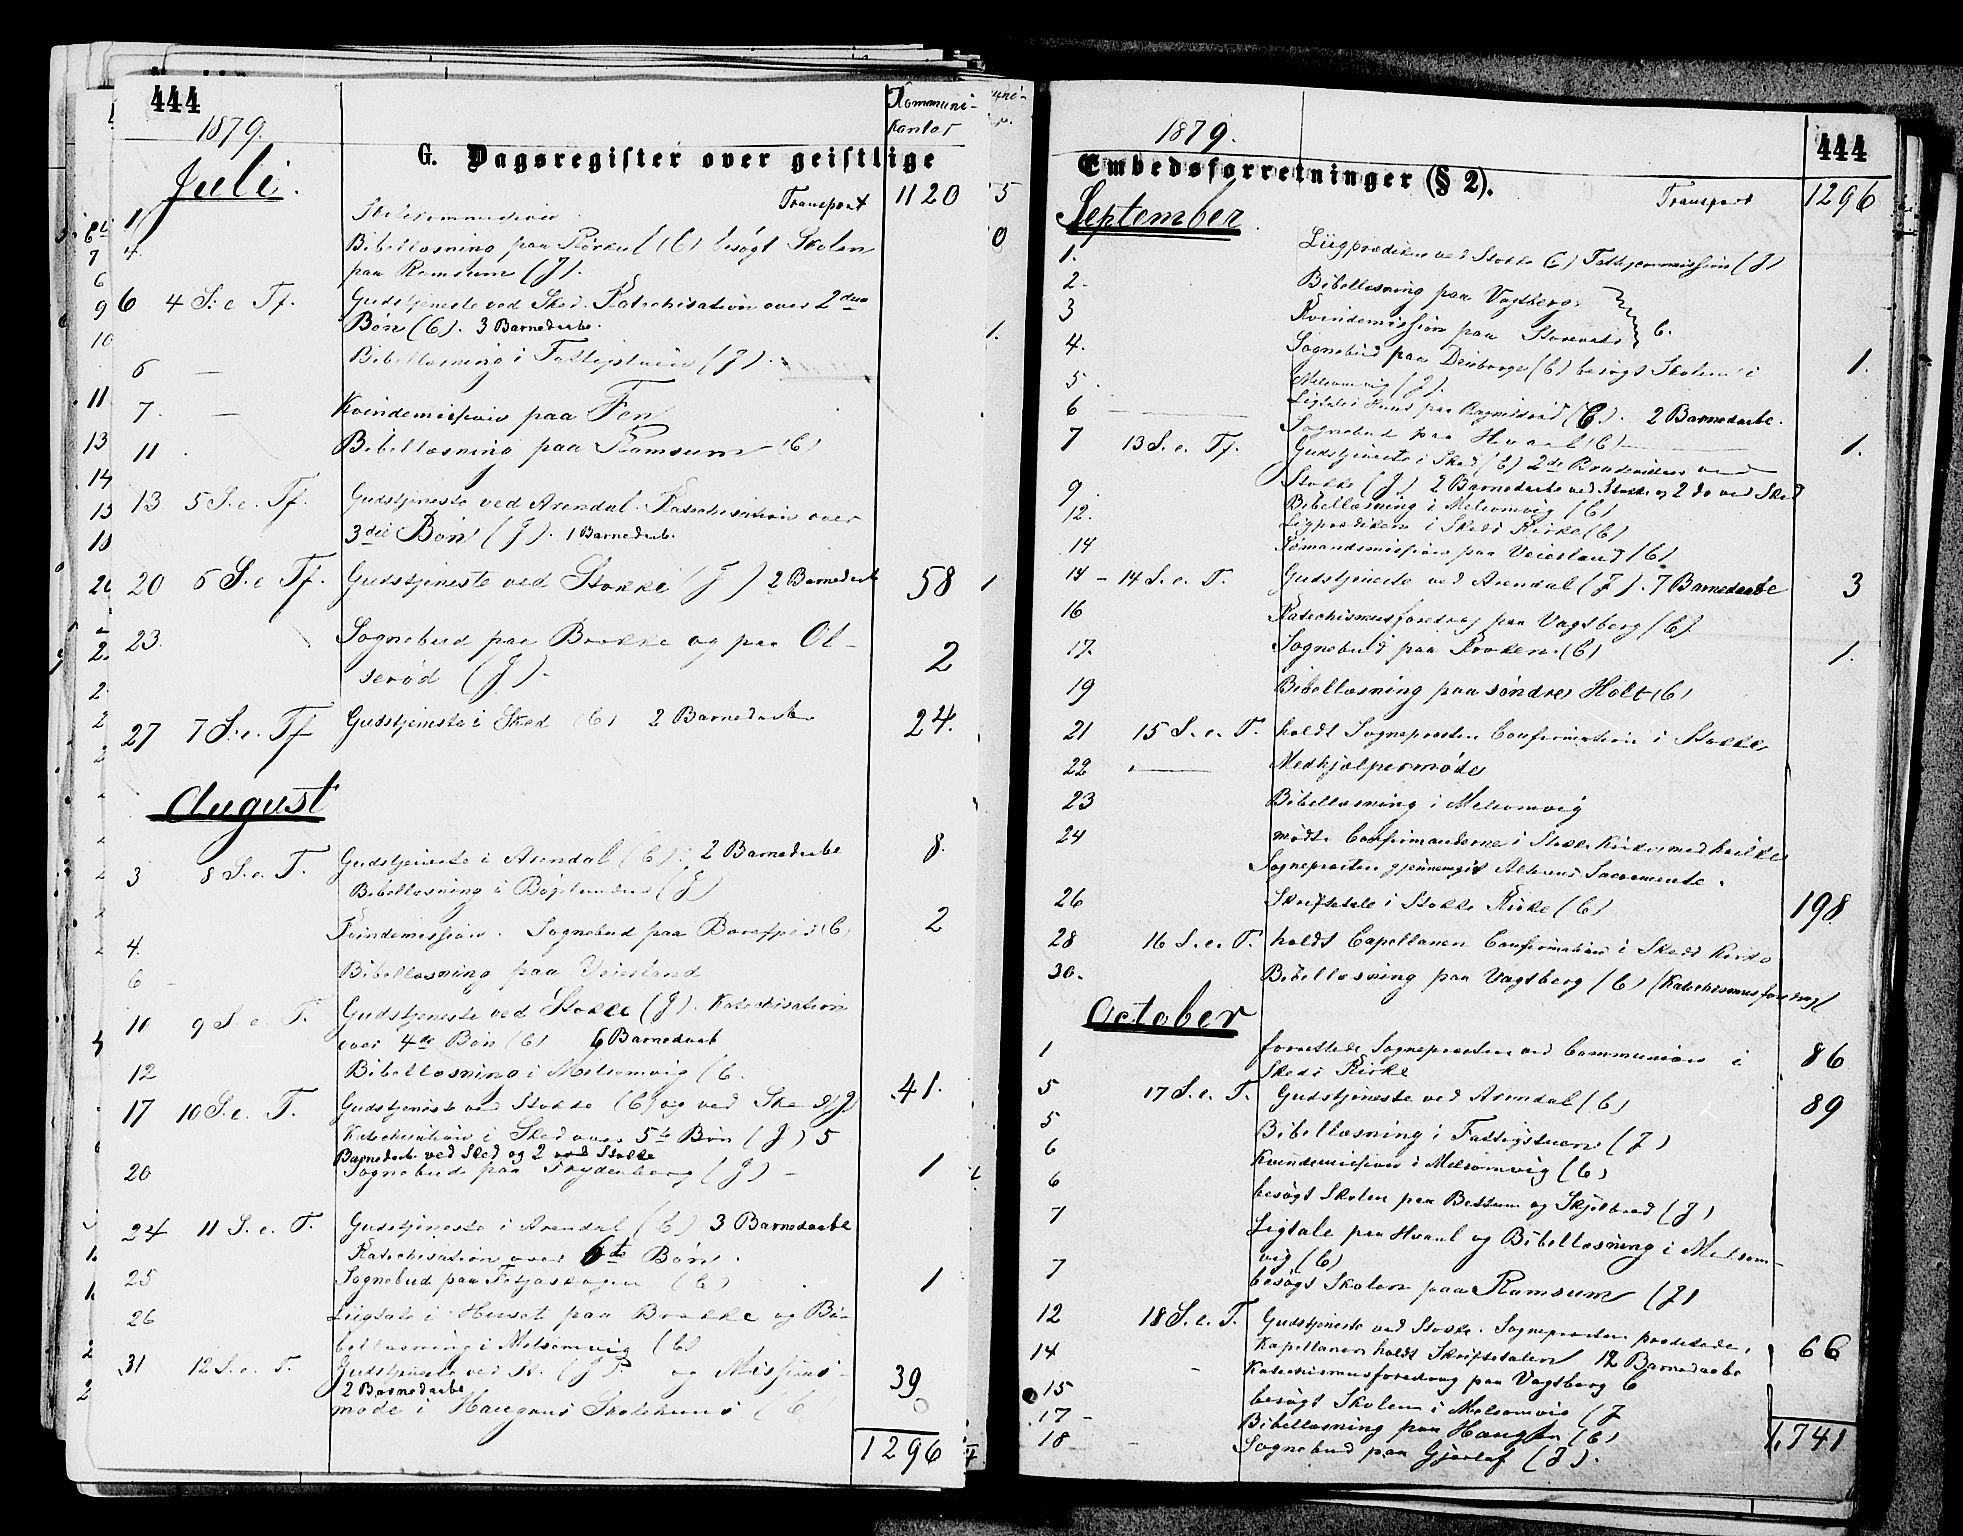 444
1879.
Kommuni-
kanter
G. Dagsregister over geistlige
Juli.
Transport 1120
1 Skolecommission
4. Bibellæsning paa (C) besøgt Skolen
paa Ramsum (J).
6 4 S. e Tf. Gudstjeneste ved Skee. Katechisation over 2den
Bøn (C). 3 Barnedaabe.
6 — Bibellæsning i Fattigstuen (J).
7. — Kvindemission paa Fen
11 Bibellæsning paa Ramsum (C)
13 5 S. e. Tf. Gudstjeneste ved Arendal. Katechisation over
3die Bøn (J). 1 Barnedaab.
20 6 S. e Tf. Gudstjeneste ved Stokke (J) 2 Barnedaab 58
23. Sognebud paa Brokke og paa Ol-
serød (J). 2
27 7 S. e. Tf Gudstjeneste i Skee (C) 2 Barnedaabe 24.
August
3 8 S. e. T. Gudstjeneste i Arendal (C). 2 Barnedaabe 8.
Bibellæsning i (J)
4. Kvindemission. Sognebud paa (C) 2
6 - Bibellæsning paa Veierland
10 9 S. e. T. Gudstjeneste ved Stokke (J). Katechisation
over 4de Bøn (C) 6 Barnedaab
12 Bibellæsning i Melsomvig (C.
17 10 S. e. T. Gudstjeneste ved Stokke (C) og ved Skee (J) 41.
Katechisation i Skee over 5te Bøn (J) 5
Barnedaabe ved Skee og 2 ved Stokke
20 Sognebud paa (J) - 1
24 11 S. e. T. Gudstjeneste i Arendal (C) 3 Barnedaabe
Katechisation over 6te Bøn.
25 Sognebud paa (C) 1
26 Liigtale i Huset paa Brokke og Bi-
bellæsning i Melsomvig (C)
31 12 S. e. T. Gudstjeneste ved St. (J) og Missions- 39
2 Barnedaabe
møde i Haugens Skolehuus (C
1296
1879.
444
Embedsforretninger (§ 2).
Transport 1296
September
1. Liigprædiken ved Stokke (C) Fattigcommission (J)
2. Bibellæsning paa Vagtberg
3 Kvindemission paa C.
4. Sognebud paa (C) besøgt Skolen i 1.
5. Melsomvig (J).
6 — Ligtale i Huset paa (C). 2 Barnedaabe.
Sognebud paa Hvaal (C)
7 13 S. e. Tf. Gudstjeneste i Skee (C) 2de ved 1.
Stokke (J) 2 Barnedaabe ved Stokke og 2 do ved Skee
9. Bibellæsning i Melsomvig (C)
12. Ligprædiken i Skee Kirke (C)
14 Sømandsmission paa Veierland (C)
14 - 14 S. e. T. Gudstjeneste ved Arendal (J). 7 Barnedaabe 3
16 Katechismusforedrag paa Vagtberg (C)
17. Sognebud paa Kroken (C) 1.
19 Bibellæsning paa søndre Holt (C)
21 15 S. e. T. holdt Sognepræsten Confirmation i Stokke
22 — Medhjælpermøde
23 Bibellæsning i Melsomvig
24 mødte Confirmanderne i Stokke Kirke med hvilke
Sognepræsten gjennemgik Alterens Sacramente.
26 Skriftetale i Stokke Kirke (C) 198
28 16 S. e. T. holdt Capellanen Confirmation i Skee Kirke
30. Bibellæsning paa Vagtberg (C) (Katechismusforedrag)
October
1 forrettede Sognepræsten ved Communion i 86
Skee Kirke
5 17 S. e. T. Gudstjeneste ved Arendal (C) 89
5 Bibellæsning i Fattigstuen (J)
6 Kvindemission i Melsomvig (C)
6 besøgt Skolen paa Bettum og Skjelbred (J)
7 Ligtale paa Hvaal og Bibellæsning i Melsom-
vig (C)
7 besøgt Skolen paa Ramsum (J)
12 18 S. e. T. Gudstjeneste ved Stokke. Sognepræsten prædikede,
Kapellanen holdt Skriftetalen 12 Barnedaabe 66
14 - Katechismusforedrag paa Vagtberg C
15 besøgt Skolen i Melsomvig (J
17 - Bibellæsning paa Haugen (C)
18 Sognebud paa Gjerlaf (J).
1,741